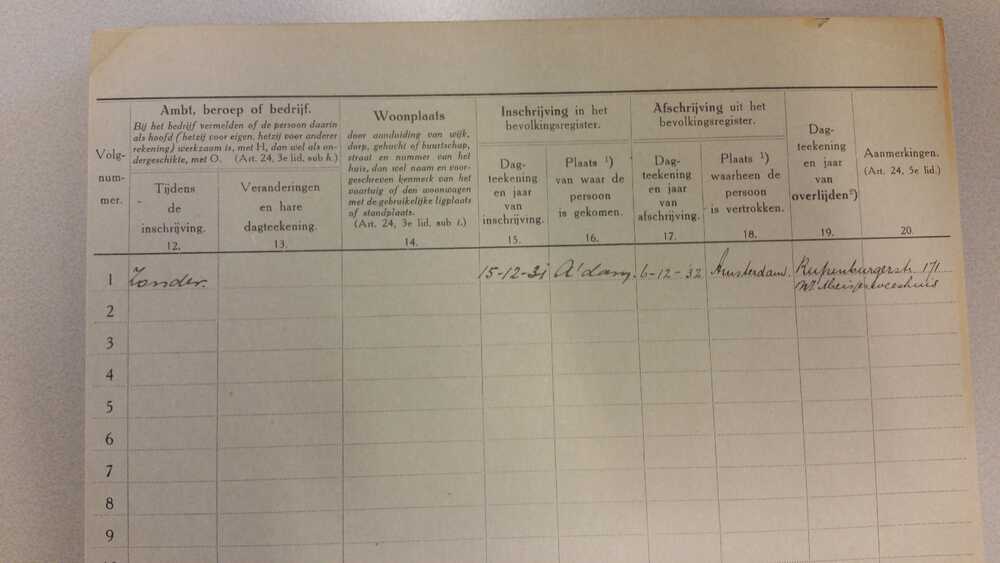 Volg-
num-
mer.
Ambt, beroep of bedrijf.
Bij het bedrijf vermelden of de persoon daarin
als hoofd (hetzij voor eigen, hetzij voor anderer
rekening) werkzaam is, met H, dan wel als on-
dergeschikte, met O. (Art. 24, 3e lid, sub h.)
Tijdens
de
inschrijving.
12.
Veranderingen
en hare
dagteekening.
13.
Woonplaats
door aanduiding van wijk,
dorp, gehucht of buurtschap,
straat en nummer van het
huis, dan wel naam en voor-
geschreven kenmerk van het
vaartuig of den woonwagen
met de gebruikelijke ligplaats
of standplaats.
(Art. 24, 3e lid, sub i.)
14.
Inschrijving in het
bevolkingsregister.
Dag-
teekening
en jaar
van
inschrijving.
15.
Plaats ¹)
van waar de
persoon
is gekomen.
16.
Afschrijving uit het
bevolkingsregister.
Dag-
teekening
en jaar
van
afschrijving.
17.
Plaats ¹)
waarheen de
persoon
is vertrokken.
18.
Dag-
teekening
en jaar
van
overlijden²)
19.
Aanmerkingen.
(Art. 24, 5e lid.)
20.
1 Zonder. 15-12-31 A'dam. 6-12-'32 Amsterdam. Rapenburgerstr. 171
2
3
4
5
6
7
8
9